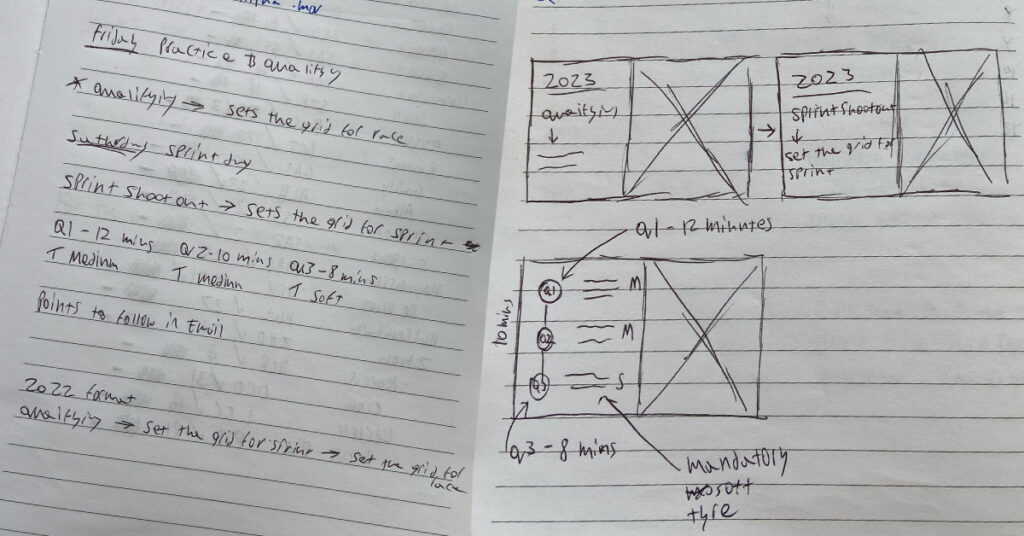 Friday Practice & Qualifying
* Qualifying → sets the grid for race
Saturday - sprint day
Sprint shootout → sets the grid for sprint
Q1 - 12 mins Q2 - 10 mins Q3 - 8 mins
T medium T medium T soft
Points to follow in Email
2022 format
Qualifying → set the grid for sprint → set the grid for
race
2023
Qualifying
↓
→
2023
sprint shootout
↓
set the grid for
sprint
Q1 - 12 minutes
10 mins
Q1 M
Q2 M
Q3 S
Q3 - 8 mins
mandatory
soft
tyre